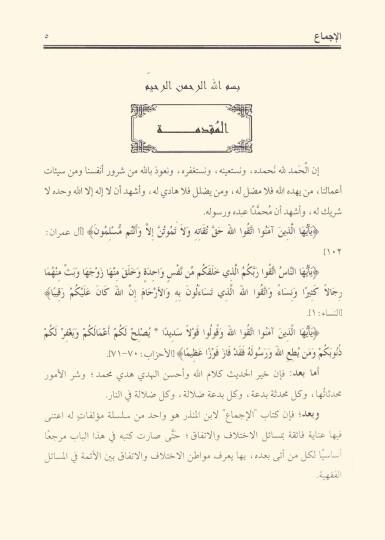 الإجماع ٥
بسم الله الرحمن الرحيم
المقدمة
إن الْحَمد لله نَحمده، ونستعينه، ونستغفره، ونعوذ بالله من شرور أنفسنا ومن سيئات
أعمالنا، من يهده الله فلا مضل له، ومن يضلل فلا هادي له، وأشهد أن لا إله إلا الله وحده لا
شريك له، وأشهد أن مُحمَّدًا عبده ورسوله.
﴿يَأَيُّهَا الَّذِينَ آمَنُوا اتَّقُوا اللهَ حَقَّ تُقَاتِهِ وَلاَ تَمُوتُنَّ إِلاَّ وَأَنْتُم مُّسْلِمُونَ﴾ [آل عمران:
١٠٢]
﴿يَأَيُّهَا النَّاسُ اتَّقُوا رَبَّكُمُ الَّذِي خَلَقَكُم مِّن نَّفْسٍ وَاحِدَةٍ وَخَلَقَ مِنْهَا زَوْجَهَا وَبَثَّ مِنْهُمَا
رِجَالاً كَثِيرًا وَنِسَاءً وَاتَّقُوا اللهَ الَّذِي تَسَاءَلُونَ بِهِ وَالأَرْحَامَ إِنَّ اللهَ كَانَ عَلَيْكُمْ رَقِيبًا﴾
[النساء: ١]
﴿يَأَيُّهَا الَّذِينَ آمَنُوا اتَّقُوا اللهَ وَقُولُوا قَوْلاً سَدِيدًا * يُصْلِحْ لَكُمْ أَعْمَالَكُمْ وَيَغْفِرْ لَكُمْ
ذُنُوبَكُمْ وَمَن يُطِعِ اللهَ وَرَسُولَهُ فَقَدْ فَازَ فَوْزًا عَظِيمًا﴾ [الأحزاب: ٧٠-٧١].
أما بعد: فإن خير الحديث كلام الله وأحسن الهدي هدي محمد؛ وشر الأمور
محدثاتُها، وكل محدثة بدعة، وكل بدعة ضلالة، وكل ضلالة في النار.
وبعد؛ فإن كتاب "الإجماع" لابن المنذر هو واحد من سلسلة مؤلفات له اعتنى
فيها عناية فائقة بِمسائل الاختلاف والاتفاق؛ حتَّى صارت كتبه في هذا الباب مرجعًا
أساسيًّا لكل من أتى بعده، بِها يعرف مواطن الاختلاف والاتفاق بين الأئمة في المسائل
الفقهية.